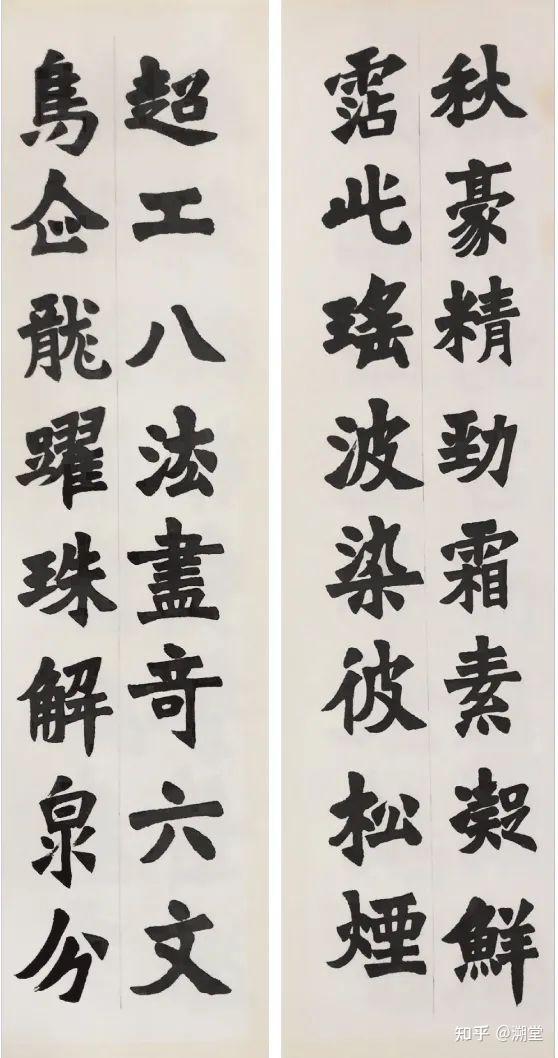 秋豪精勁霜素凝鮮
霑此瑤波染彼松煙
超工八法盡奇六文
鳥企龍躍珠解泉分
知乎 @溯堂